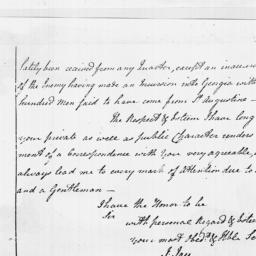 lately been recieved from any Quarter, except an
of the Enemy having made an Incursion into Georgia with
hundred Men said to have come from St Augustine —
The Respect & Esteem I have long
your private as well as public Character renders
most of a Correspondence with you very agreeable,
always lead me to every mark of Attention due to
and a Gentleman —
I have the Honor to be
Sir
with personal Regard & Esteem
your most Obedt. & Hble Se
J. Jay